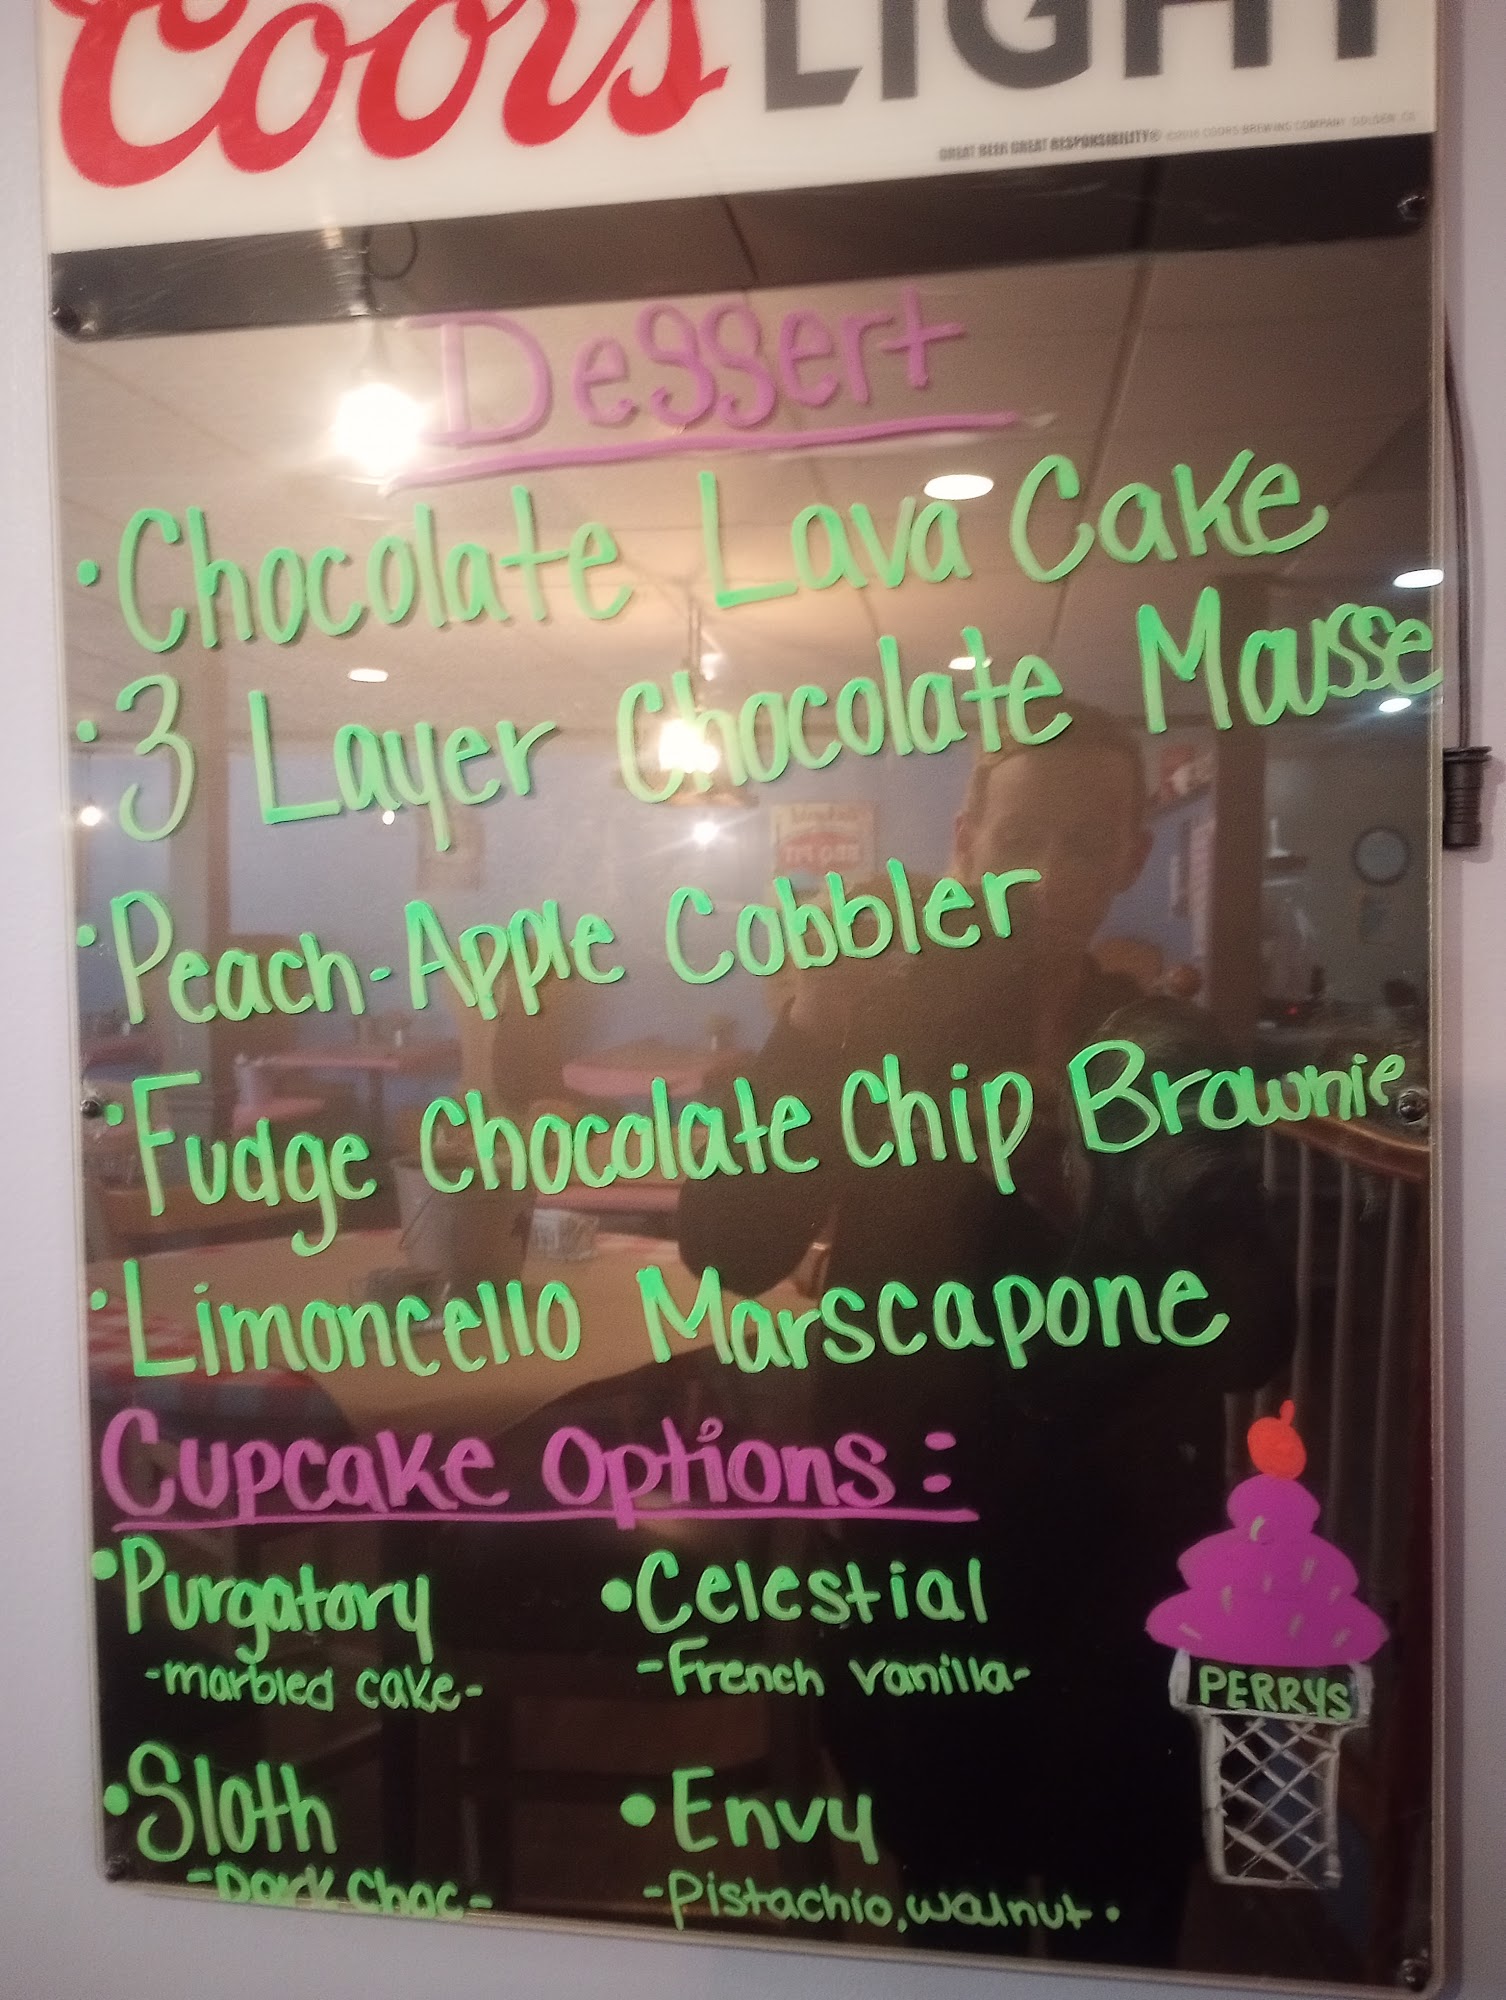 Coors LIGHT
GREAT BEER GREAT RESPONSIBILITY® ©2016 COORS BREWING COMPANY, GOLDEN, CO
Dessert
• Chocolate Lava Cake
• 3 Layer Chocolate Mousse
• Peach-Apple Cobbler
• Fudge Chocolate Chip Brownie
• Limoncello Marscapone
Cupcake Options:
• Purgatory
-marbled cake-
• Celestial
-French vanilla-
PERRYS
• Sloth
-Dark Choc-
• Envy
-Pistachio, walnut.